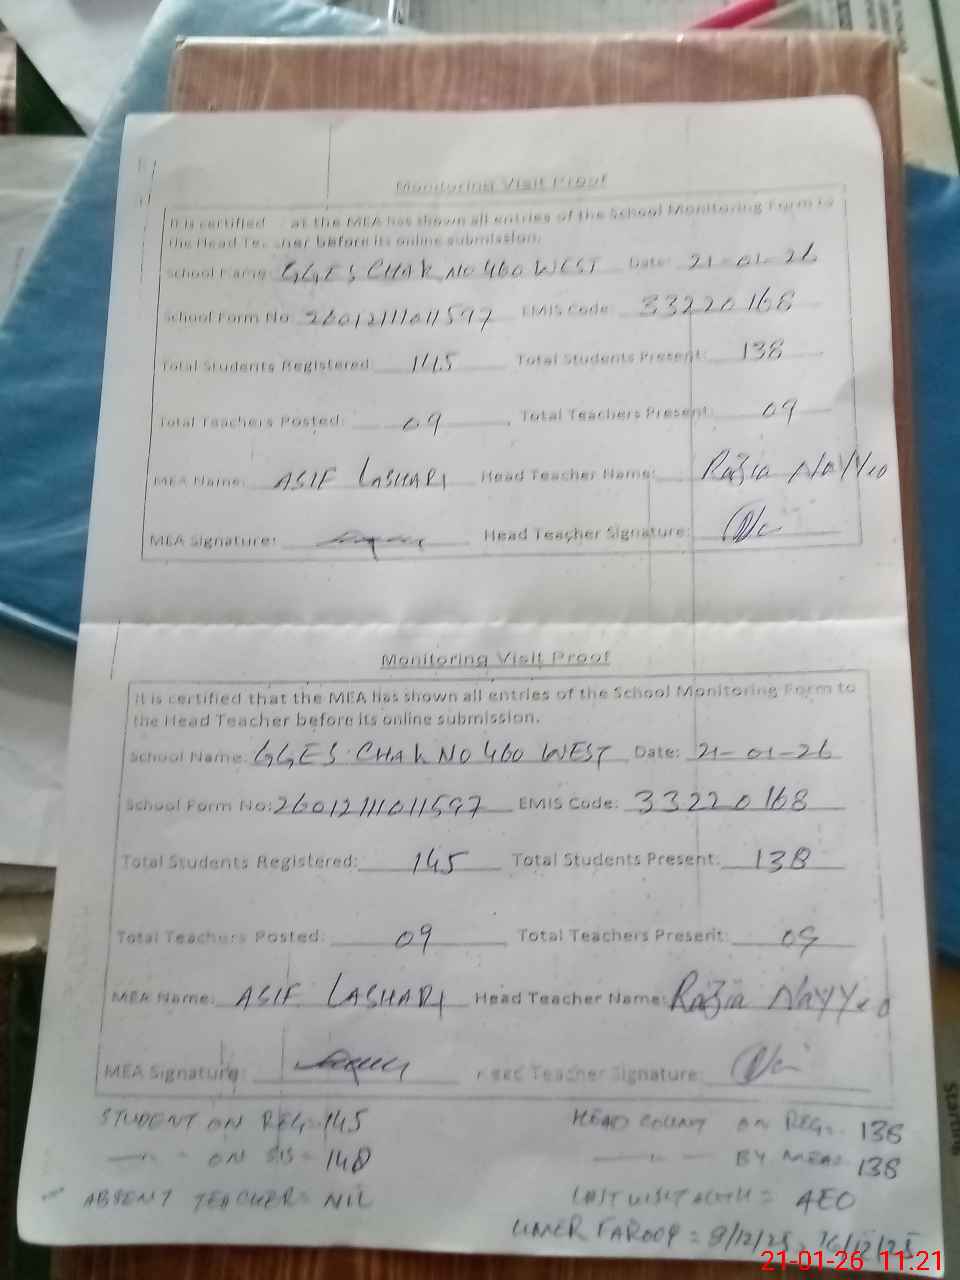 Monitoring Visit Proof
It is certified at the MEA has shown all entries of the School Monitoring Form to
the Head Teacher before its online submission.
School Name: GGES CHAK NO 460 WEST Date: 21-01-26
School Form No: 26012111011597 EMIS Code: 33220168
Total Students Registered: 145 Total Students Present: 138
Total Teachers Posted: 09 Total Teachers Present: 09
MEA Name: ASIF LASHARI Head Teacher Name: Razia
MEA Signature: Head Teacher Signature:
Monitoring Visit Proof
It is certified that the MEA has shown all entries of the School Monitoring Form to
the Head Teacher before its online submission.
School Name: GGES CHAK NO 460 WEST Date: 21-01-26
School Form No: 26012111011597 EMIS Code: 33220168
Total Students Registered: 145 Total Students Present: 138
Total Teachers Posted: 09 Total Teachers Present: 09
MEA Name: ASIF LASHARI Head Teacher Name: Razia
MEA Signature: Teacher Signature:
STUDENT ON REG = 145 HEAD COUNT ON REG = 138
ON SIS = 140 BY MEA = 138
ABSENT TEACHER = NIL LAST VISIT = AEO
UMER FAROOQ = 8/12/25, 16/12/25
21-01-26 11:21
Starting